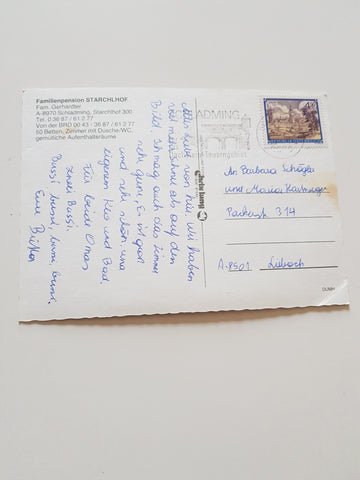 Familienpension STARCHLHOF
Fam. Gerhardter
A-8970 Schladming, Starchlhof 300
Tel. 0 36 87 / 61 2 77
Von der BRD 00 43 - 36 87 / 61 2 77
50 Betten, Zimmer mit Dusche/WC,
gemütliche Aufenthaltsräume
Alles Liebe von hier, wir haben
viel mehr Schnee als auf dem
Bild. Ich mag auch das Zimmer
sehr gern. Es ist groß
und sehr schön, und
eigenem Klo und Bad.
Für beide Omas
zwei Bussi.
Bussi, bussi, bussi, bussi.
Eure
ADMING
An Barbara
und Maria
314
A-8501 Lieboch
DUMH